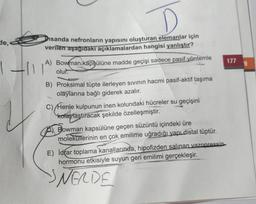 D
İnsanda nefronların yapısını oluşturan elemanlar için
verilen aşağıdaki açıklamalardan hangisi yanlıştır?
de,
A) Bowman kapsülüne madde geçişi sadece pasif yöntemle
olur.
177
B) Proksimal tüpte ilerleyen sıvının hacmi pasif-aktif taşıma
olaylarına bağlı giderek azalır.
C) Henle kulpunun inen kolundaki hücreler su geçişini
kolaylaştıracak şekilde özelleşmiştir.
D) Bowman kapsülüne geçen süzüntü içindeki üre
moleküllerinin en çok emilime uğradığı yapı distal tüptür.
E) İdrar toplama kanallarında, hipofizden salınan vazopressin
hormonu etkisiyle suyun geri emilimi gerçekleşir.
NERDE